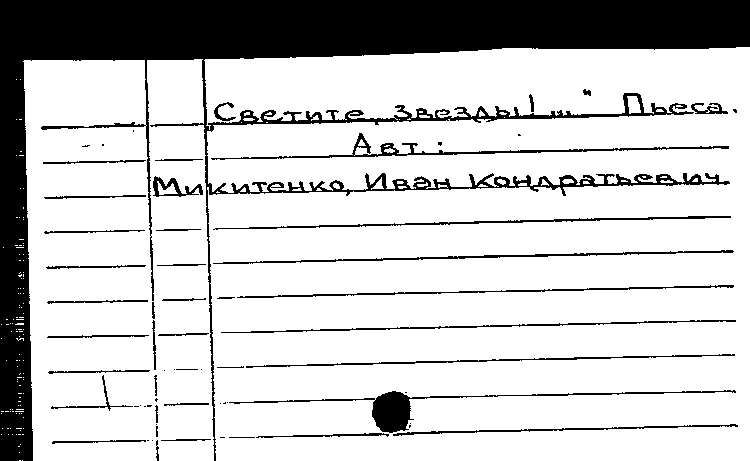 „Светите, звезды!..." Пьеса.
Авт.:
Микитенко, Иван Кондратьевич.